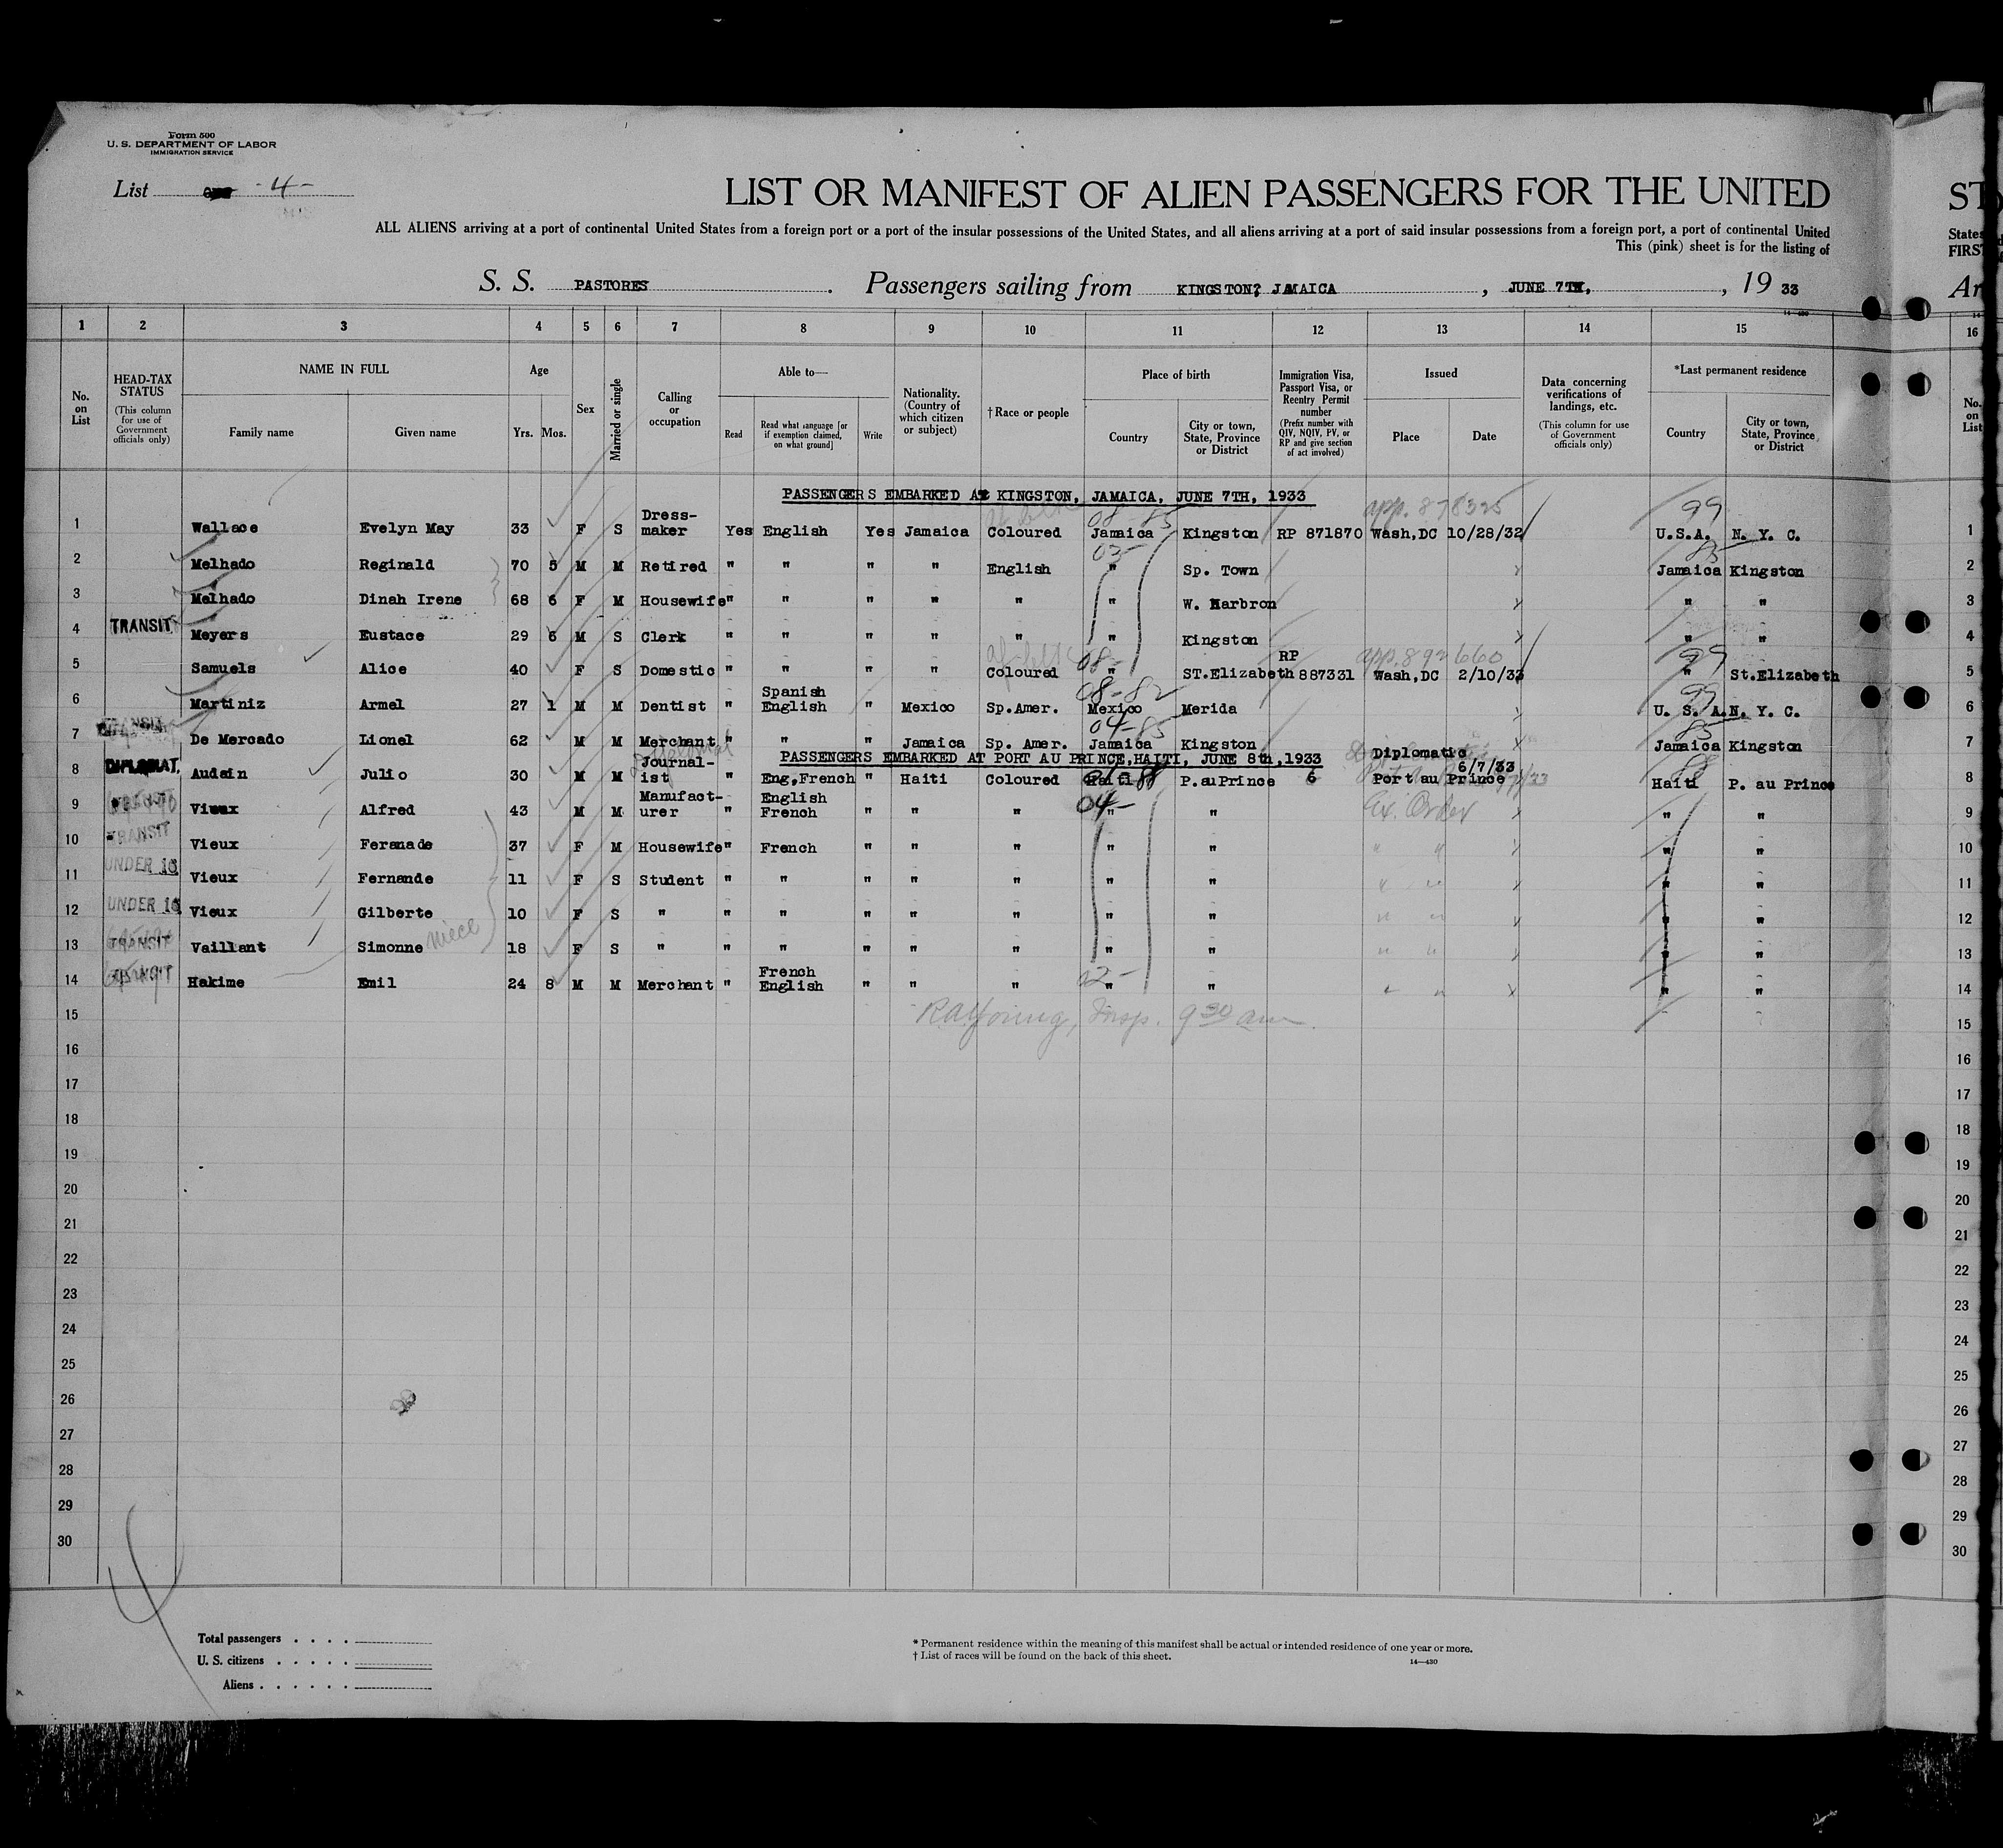 Form 500
U. S. DEPARTMENT OF LABOR
IMMIGRATION SERVICE
List -4-
LIST OR MANIFEST OF ALIEN PASSENGERS FOR THE UNITED
ALL ALIENS arriving at a port of continental United States from a foreign port or a port of the insular possessions of the United States, and all aliens arriving at a port of said insular possessions from a foreign port, a port of continental United
This (pink) sheet is for the listing of
S. S. PASTORES. Passengers sailing from KINGSTON? JAMAICA, JUNE 7TH, , 19 33
1 2 3 4 5 6 7 8 9 10 11 12 13 14 15
No. on List
HEAD-TAX STATUS (This column for use of Government officials only)
NAME IN FULL Family name Given name
Age Yrs. Mos.
Sex
Married or single
Calling or occupation
Able to— Read Read what language [or if exemption claimed, on what ground] Write
Nationality. (Country of which citizen or subject)
† Race or people
Place of birth Country City or town, State, Province or District
Immigration Visa, Passport Visa, or Reentry Permit number (Prefix number with QIV, NQIV, PV, or RP and give section of act involved)
Issued Place Date
Data concerning verifications of landings, etc. (This column for use of Government officials only)
*Last permanent residence Country City or town, State, Province or District
PASSENGERS EMBARKED AT KINGSTON, JAMAICA, JUNE 7TH, 1933
app. 878325
1 Wallace Evelyn May 33 F S Dress-maker Yes English Yes Jamaica Coloured 08-85 Jamaica Kingston RP 871870 Wash,DC 10/28/32 99 U.S.A. N. Y. C. 1
2 Melhado Reginald 70 5 M M Retired " " " " English 03- " Sp. Town 85 Jamaica Kingston 2
3 Melhado Dinah Irene 68 6 F M Housewife " " " " " " W. Harbron " " 3
4 TRANSIT Meyers Eustace 29 6 M S Clerk " " " " " " Kingston " " 4
5 Samuels Alice 40 F S Domestic " " " " Coloured 08- " ST.Elizabeth RP 887331 app. 892660 Wash,DC 2/10/33 99 " St.Elizabeth 5
6 Martiniz Armel 27 1 M M Dentist " Spanish English " Mexico Sp.Amer. 08-82 Mexico Merida 99 U. S. A. N. Y. C. 6
7 TRANSIT De Mercado Lionel 62 M M Merchant " " " Jamaica Sp. Amer. 04-85 Jamaica Kingston 85 Jamaica Kingston 7
PASSENGERS EMBARKED AT PORT AU PRINCE,HAITI, JUNE 8th,1933
8 DIPLOMAT. Audain Julio 30 M M Journal-ist " Eng,French " Haiti Coloured Haiti P.auPrince 6 Diplomatic Port au Prince 6/7/33 88 Haiti P. au Prince 8
9 Vieux Alfred 43 M M Manufact-urer " English French " " " 04- " " Ex. Order " " 9
10 TRANSIT Vieux Feranade 37 F M Housewife " French " " " " " " " " " 10
11 UNDER 16 Vieux Fernande 11 F S Student " " " " " " " " " " " 11
12 UNDER 16 Vieux Gilberte 10 F S " " " " " " " " " " " " 12
13 TRANSIT Vaillant Simonne niece 18 F S " " " " " " " " " " " " 13
14 TRANSIT Hakime Emil 24 8 M M Merchant " French English " " " 02- " " " " " " 14
15 Insp. 9 30 am 15
16 16
17 17
18 18
19 19
20 20
21 21
22 22
23 23
24 24
25 25
26 26
27 27
28 28
29 29
30 30
Total passengers . . . .
U. S. citizens . . . . .
Aliens . . . . . .
* Permanent residence within the meaning of this manifest shall be actual or intended residence of one year or more.
† List of races will be found on the back of this sheet.
14—430
ST
States
FIRST
Ar
16
No. on List